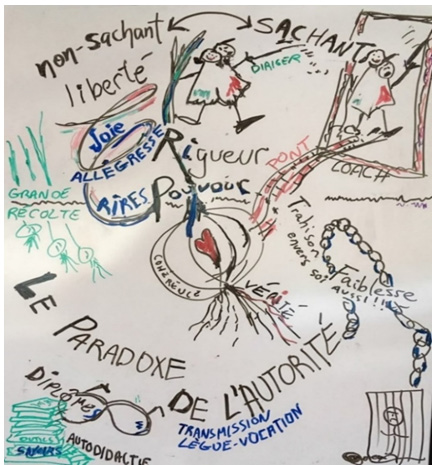 non-sachant
SACHANTS
liberté
DIRIGER
Joie
ALLÉGRESSE
Rigueur
PONT
COACH
RIRES
Pouvoir
GRANDE
RÉCOLTE
Trahison
envers soi
Faiblesse
AUSSI!!!
COHÉRENCE
VÉRITÉ
LE PARADOXE
DE L'AUTORITÉ
Diplômes
TRANSMISSION
LÈGUE-VOCATION
AUTODIDACTIE
OUTILS
SAVOIRS